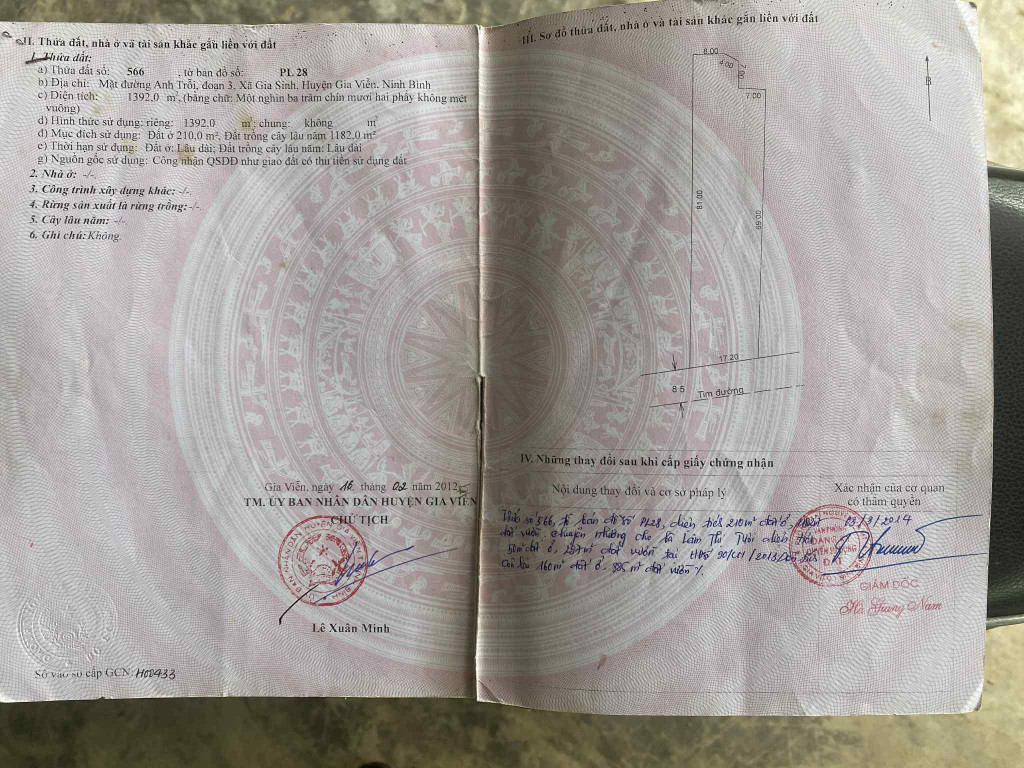 II. Thửa đất, nhà ở và tài sản khác gắn liền với đất
1. Thửa đất:
a) Thửa đất số: 566 , tờ bản đồ số: PL 28
b) Địa chỉ: Mặt đường Anh Trỗi, đoạn 3, Xã Gia Sinh, Huyện Gia Viễn, Ninh Bình
c) Diện tích: 1392,0 m², (bằng chữ: Một nghìn ba trăm chín mươi hai phẩy không mét
vuông)
d) Hình thức sử dụng: riêng: 1392,0 m²; chung: không m²
đ) Mục đích sử dụng: Đất ở 210,0 m², Đất trồng cây lâu năm 1182,0 m²
e) Thời hạn sử dụng: Đất ở: Lâu dài; Đất trồng cây lâu năm: Lâu dài
g) Nguồn gốc sử dụng: Công nhận QSDĐ như giao đất có thu tiền sử dụng đất
2. Nhà ở: -/-
3. Công trình xây dựng khác: -/-
4. Rừng sản xuất là rừng trồng: -/-
5. Cây lâu năm: -/-
6. Ghi chú: Không.
Gia Viễn, ngày 16 tháng 02 năm 2012
TM. ỦY BAN NHÂN DÂN HUYỆN GIA VIỄN
CHỦ TỊCH
Lê Xuân Minh
Số vào sổ cấp GCN: H00433
III. Sơ đồ thửa đất, nhà ở và tài sản khác gắn liền với đất
8.00
4.00
7.00
7.00
B
81.00
69.00
17.20
8.5
Tim đường
IV. Những thay đổi sau khi cấp giấy chứng nhận
Nội dung thay đổi và cơ sở pháp lý
Xác nhận của cơ quan
có thẩm quyền
Thửa số 566, tờ bản đồ số PL28, diện tích 210m² đất ở,
đất vườn. chuyển nhượng cho bà Lâm Thị diện tích
50m² đất ở, m² đất vườn tại HĐ số
Còn lại 160m² đất ở - m² đất vườn /.
/3/2014
GIÁM ĐỐC
Giang Nam